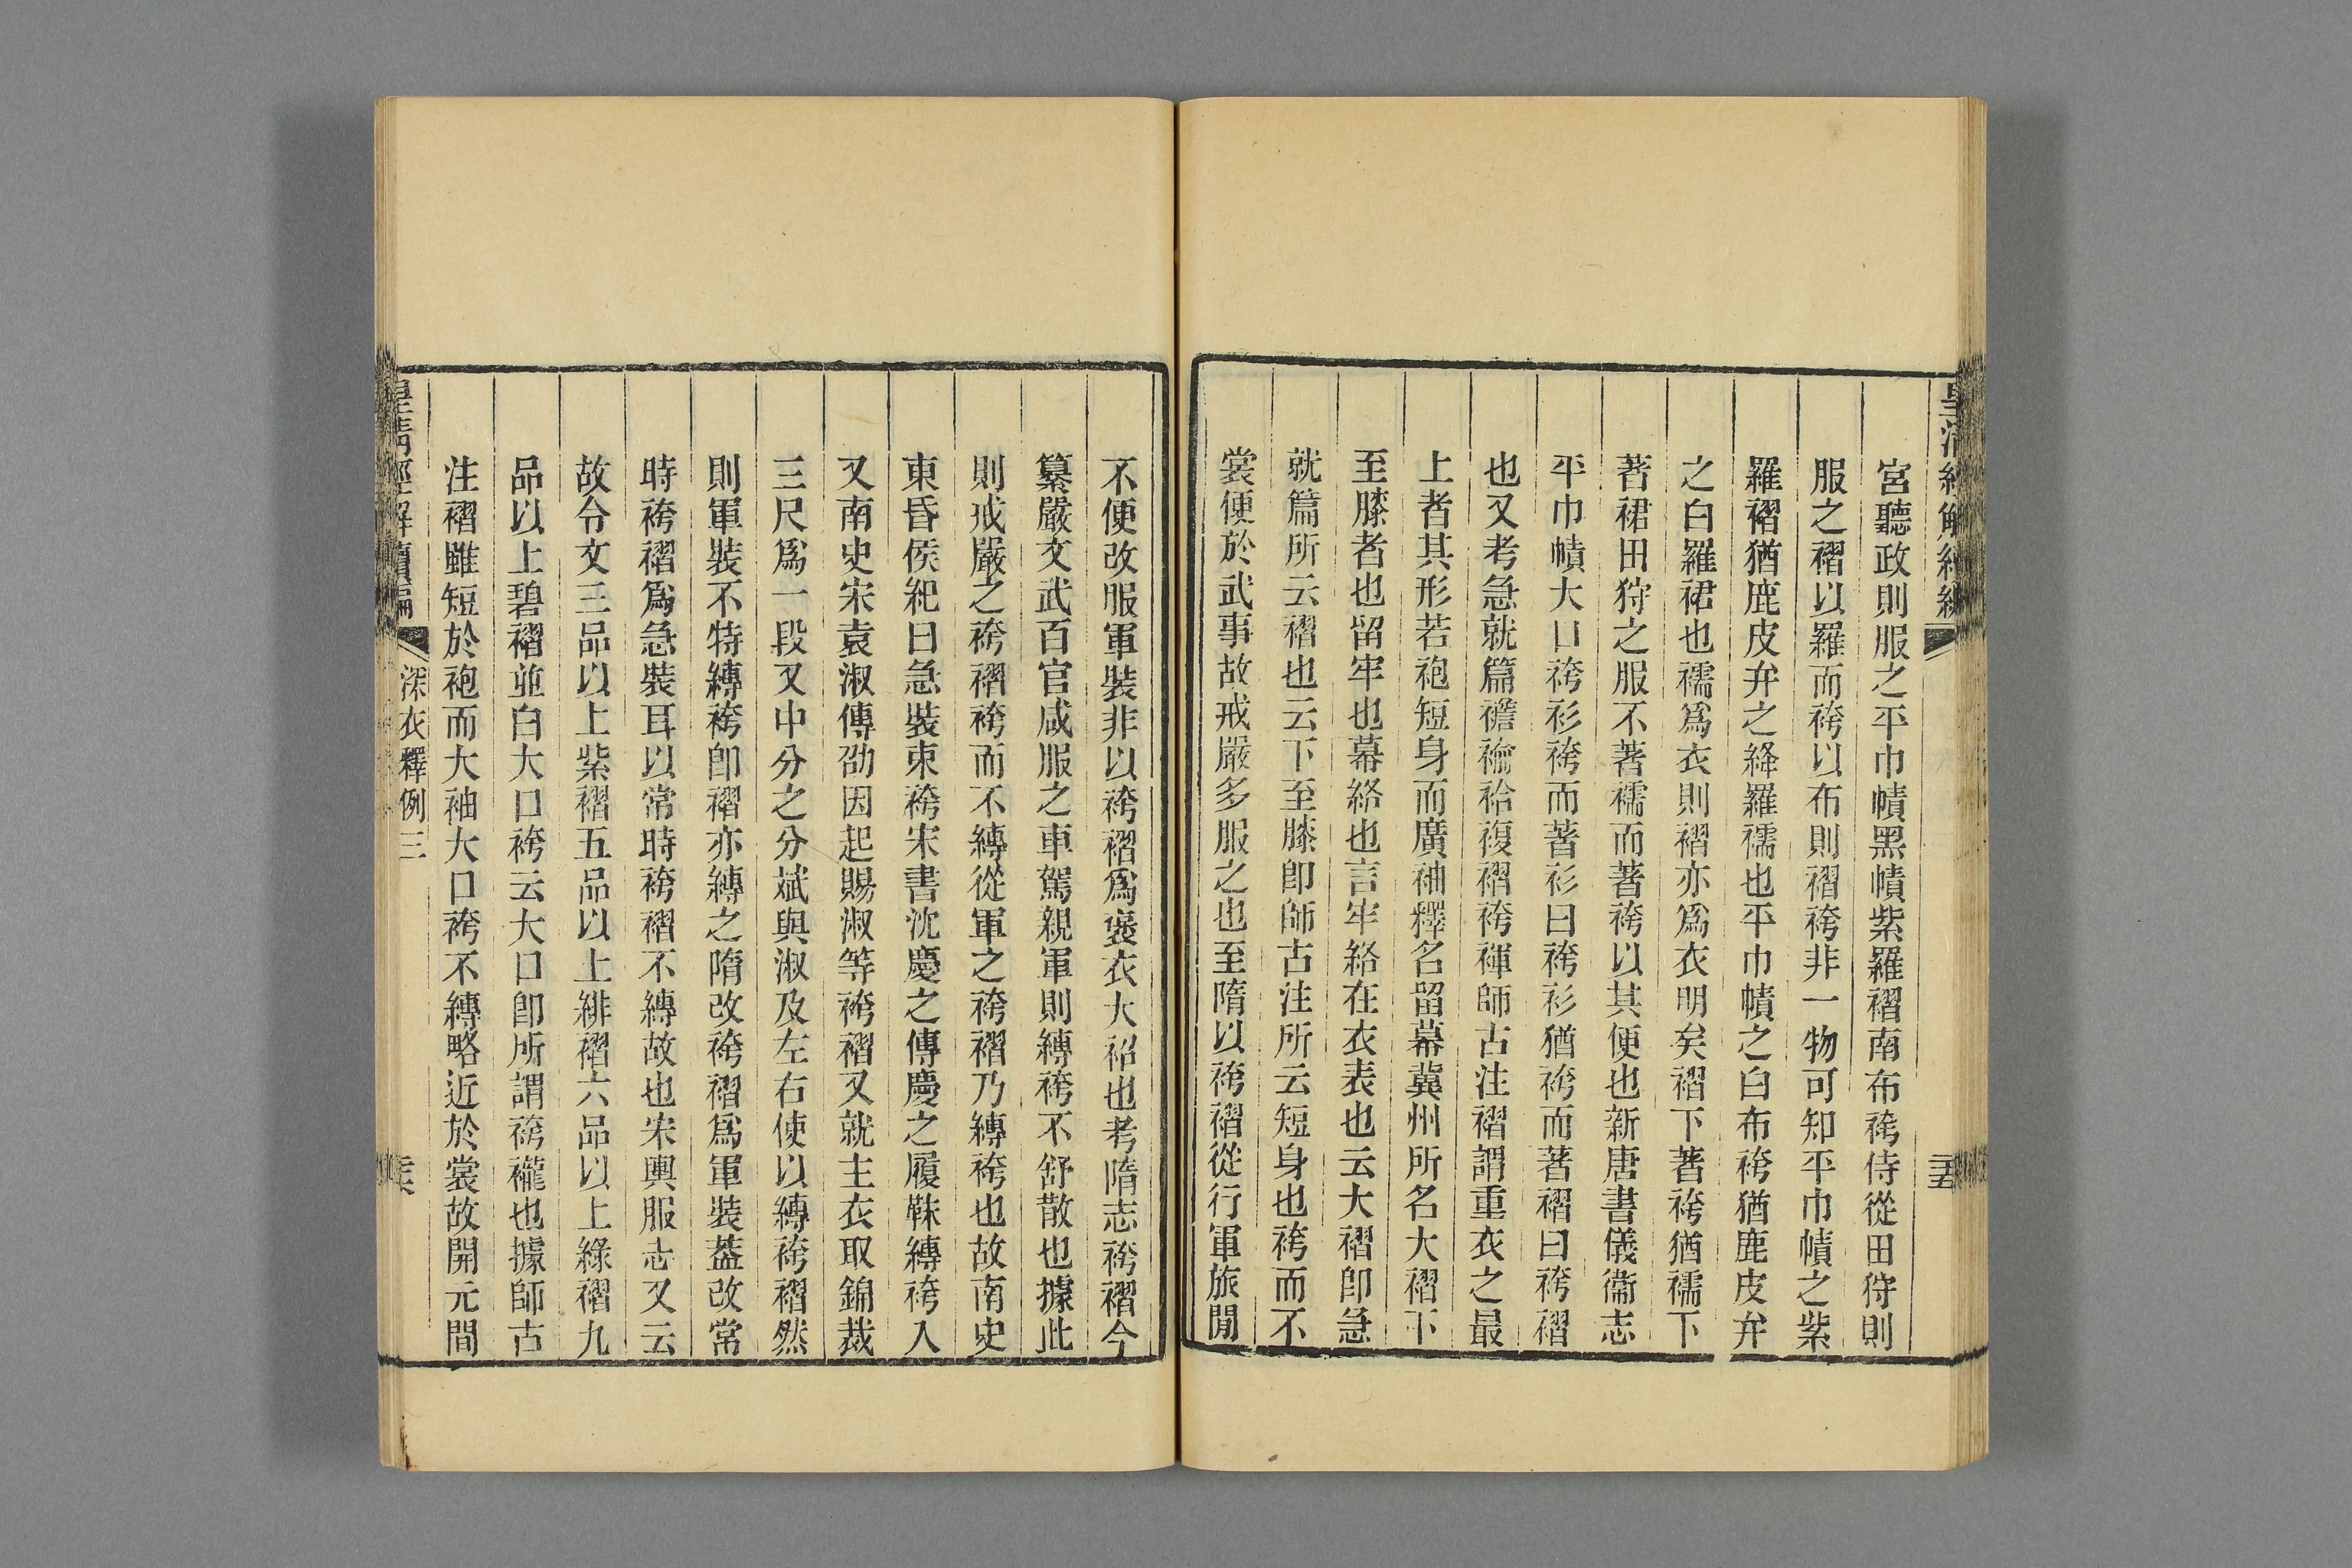 宮聽政則服之平巾幘黑幘紫羅褶南布袴侍從田狩則
服之褶以羅而袴以布則褶袴非一物可知平巾幘之紫
羅褶猶鹿皮弁之絳羅襦也平巾幘之白布袴猶鹿皮弁
之白羅裙也襦爲衣則褶亦爲衣明矣褶下著袴猶襦下
著裙田狩之服不著襦而著袴以其便也新唐書儀衞志
平巾幘大口袴衫袴而著衫曰袴衫猶袴而著褶曰袴褶
也又考急就篇襜褕袷複褶袴褌師古注褶謂重衣之最
上者其形若袍短身而廣袖釋名留幕冀州所名大褶下
至膝者也留牢也幕絡也言牢絡在衣表也云大褶卽急
就篇所云褶也云下至膝卽師古注所云短身也袴而不
裳便於武事故戒嚴多服之也至隋以袴褶從行軍旅閒
不便改服軍裝非以袴褶爲褒衣大袑也考隋志袴褶今
纂嚴文武百官咸服之車駕親軍則縛袴不舒散也據此
則戒嚴之袴褶袴而不縛從軍之袴褶乃縛袴也故南史
東昏侯紀曰急裝束袴宋書沈慶之傳慶之履韈縛袴入
又南史宋袁淑傳劭因起賜淑等袴褶又就主衣取錦裁
三尺爲一段又中分之分斌與淑及左右使以縛袴褶然
則軍裝不特縛袴卽褶亦縛之隋改袴褶爲軍裝蓋改常
時袴褶爲急裝耳以常時袴褶不縛故也宋輿服志又云
故令文三品以上紫褶五品以上緋褶六品以上綠褶九
品以上碧褶並白大口袴云大口卽所謂袴襱也據師古
注褶雖短於袍而大袖大口袴不縛略近於裳故開元間
皇清經解續編 深衣釋例三